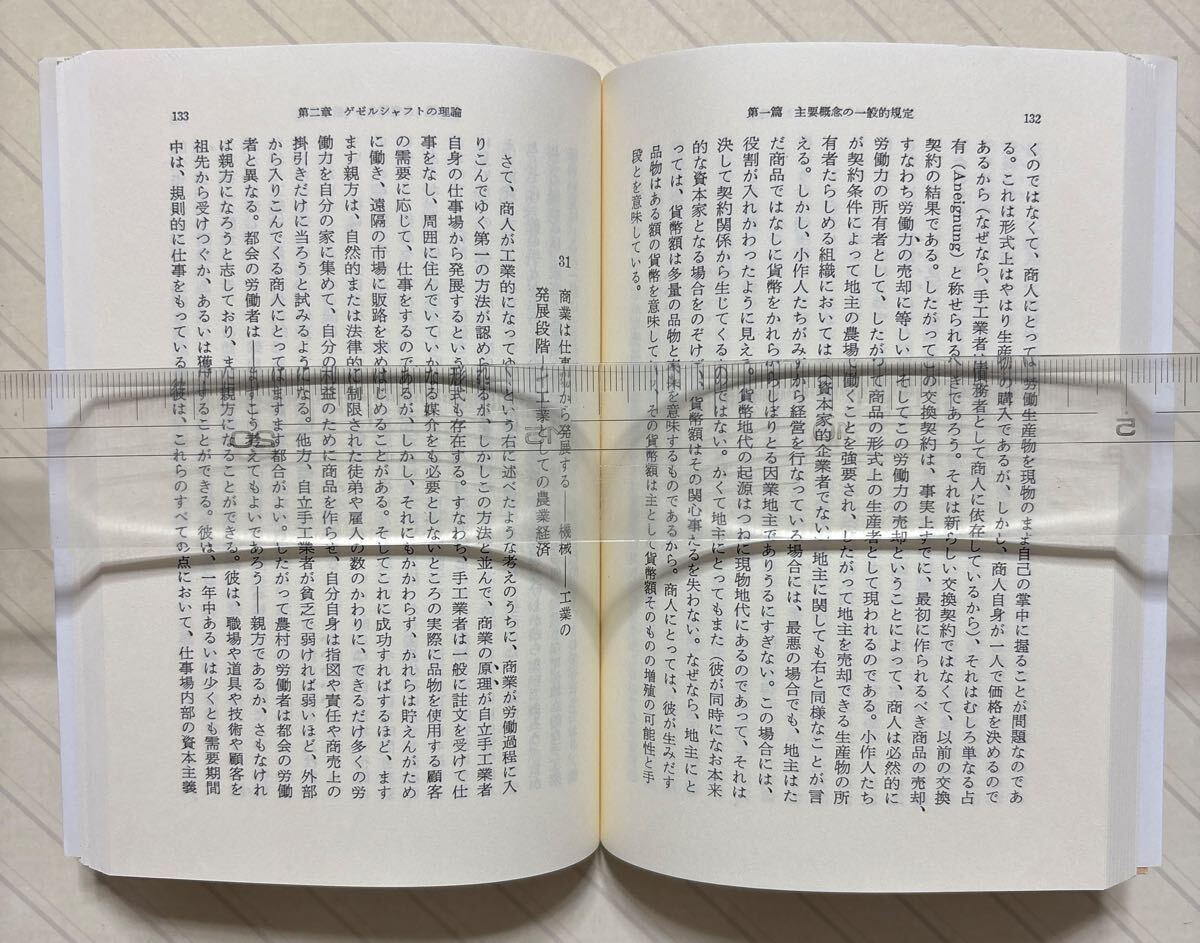 132
第一篇 主要概念の一般的規定
くのではなくて、商人にとっては労働生産物を現物のまま自己の掌中に握ることが問題なのであ
る。これは形式上はやはり生産物の購入であるが、しかし、商人自身が一人で価格を決めるので
あるから(なぜなら、手工業者は債務者として商人に依存しているから)、それはむしろ単なる占
有(Aneignung)と称せられるべきであろう。それは新らしい交換契約ではなくて、以前の交換
契約の結果である。したがってこの交換契約は、事実上すでに、最初に作られるべき商品の売却、
すなわち労働力の売却に等しい。そしてこの労働力の売却ということによって、商人は必然的に
労働力の所有者として、したがって商品の形式上の生産者として現われるのである。小作人たち
が契約条件によって地主の農場で働くことを強要され、したがって地主を売却できる生産物の所
有者たらしめる組織においては、資本家的企業者でない地主に関しても右と同様なことが言
える。しかし、小作人たちがみずから経営を行なっている場合には、最悪の場合でも、地主はた
だ商品ではなしに貨幣をかれらからしぼりとる因業地主でありうるにすぎない。この場合には、
役割が入れかわったように見える。貨幣地代の起源はつねに現物地代にあるのであって、それは
決して契約関係から生じてくるのではない。かくて地主にとってもまた(彼が同時になお本来
的な資本家となる場合をのぞけば)、貨幣額はその関心事たるを失わない。なぜなら、地主にと
っては、貨幣額は多量の品物と享楽を意味するものであるから。商人にとっては、彼が生みだす
品物はある額の貨幣を意味しており、その貨幣額は主として貨幣額そのものの増殖の可能性と手
段とを意味している。
第二章 ゲゼルシャフトの理論
133
31 商業は仕事場から発展する――機械――工業の
発展段階――工業としての農業経済
さて、商人が工業的になってゆくという右に述べたような考えのうちに、商業が労働過程に入
りこんでゆく第一の方法が認められるが、しかしこの方法と並んで、商業の原理が自立手工業者
自身の仕事場から発展するという形式も存在する。すなわち、手工業者は一般に註文を受けて仕
事をなし、周囲に住んでいていかなる媒介をも必要としないところの実際に品物を使用する顧客
の需要に応じて、仕事をするのであるが、しかし、それにもかかわらず、かれらは貯えんがため
に働き、遠隔の市場に販路を求めはじめることがある。そしてこれに成功すればするほど、ます
ます親方は、自然的または法律的に制限された徒弟や雇人の数のかわりに、できるだけ多くの労
働力を自分の家に集めて、自分の利益のために商品を作らせ、自分自身は指図や責任や商売上の
掛引きだけに当ろうと試みるようになる。他方、自立手工業者が貧乏で弱ければ弱いほど、外部
から入りこんでくる商人にとってはますます都合がよい。したがって農村の労働者は都会の労働
者と異なる。都会の労働者は――まずこう考えてもよいであろう――親方であるか、さもなけれ
ば親方になろうと志しており、また親方になることができる。彼は、職場や道具や技術や顧客を
祖先から受けつぐか、あるいは獲得することができる。彼は、一年中あるいは少くとも需要期間
中は、規則的に仕事をもっている。彼は、これらのすべての点において、仕事場内部の資本主義